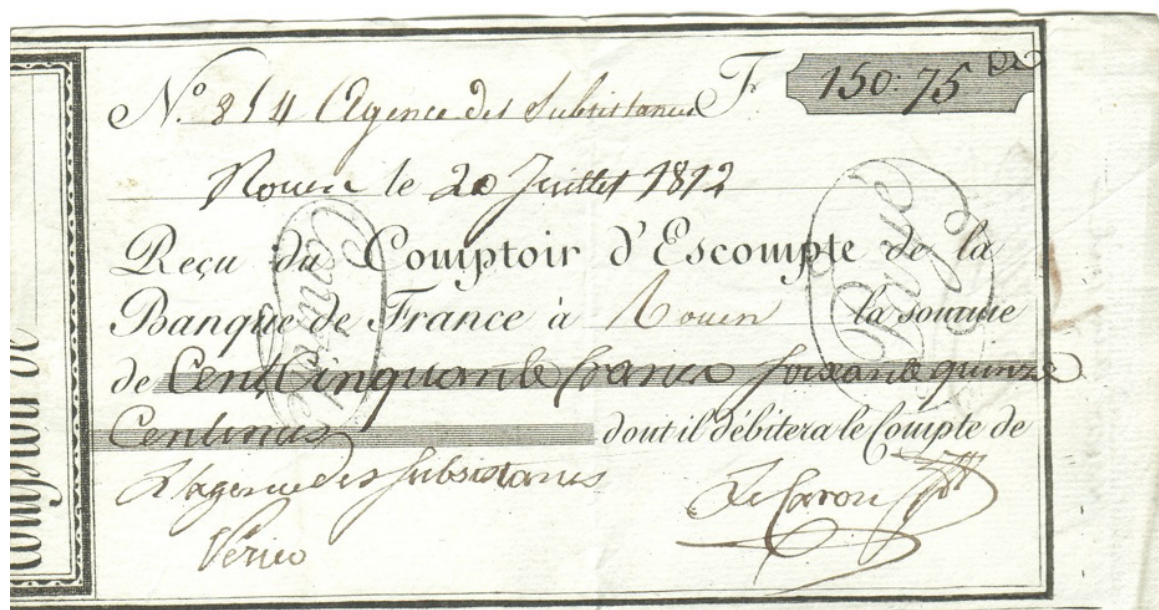 N.º 814 Agence des Subsistances F. 150.75
Rouen le 20 Juillet 1812
Reçu du Comptoir d'Escompte de la
Banque de France à Rouen la somme
de Cent Cinquante francs soixante quinze
Centimes dont il débitera le Compte de
L'agence des subsistances
Le Caron
Payé
Comptoir de